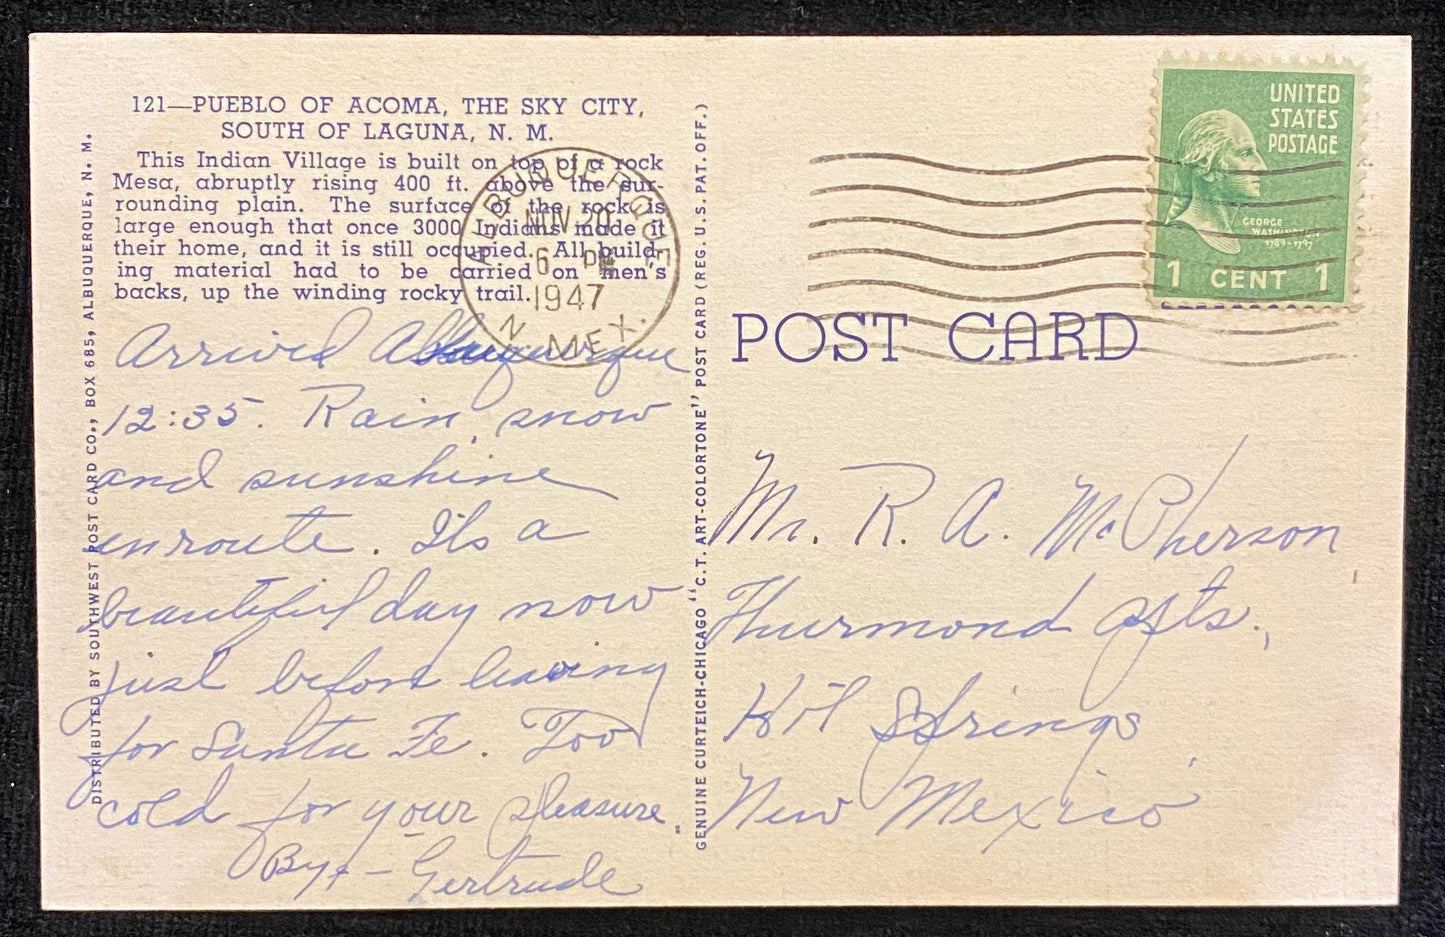 121—PUEBLO OF ACOMA, THE SKY CITY,
SOUTH OF LAGUNA, N. M.
This Indian Village is built on top of a rock
Mesa, abruptly rising 400 ft. above the sur-
rounding plain. The surface of the rock is
large enough that once 3000 Indians made it
their home, and it is still occupied. All build-
ing material had to be carried on men's
backs, up the winding rocky trail.
ALBUQUERQUE
NOV 20
6 PM
1947
N. MEX.
Arrived Albuquerque
12:35. Rain, snow
and sunshine
enroute. It's a
beautiful day now
just before leaving
for Santa Fe. Too
cold for your pleasure.
By, – Gertrude
DISTRIBUTED BY SOUTHWEST POST CARD CO., BOX 685, ALBUQUERQUE, N. M.
GENUINE CURTEICH-CHICAGO "C.T. ART-COLORTONE" POST CARD (REG. U.S. PAT. OFF.)
UNITED
STATES
POSTAGE
GEORGE
WASHINGTON
1789-1797
1 CENT 1
POST CARD
Mr. R. A. McPherson,
Thurmond Apts.,
Hot Springs,
New Mexico